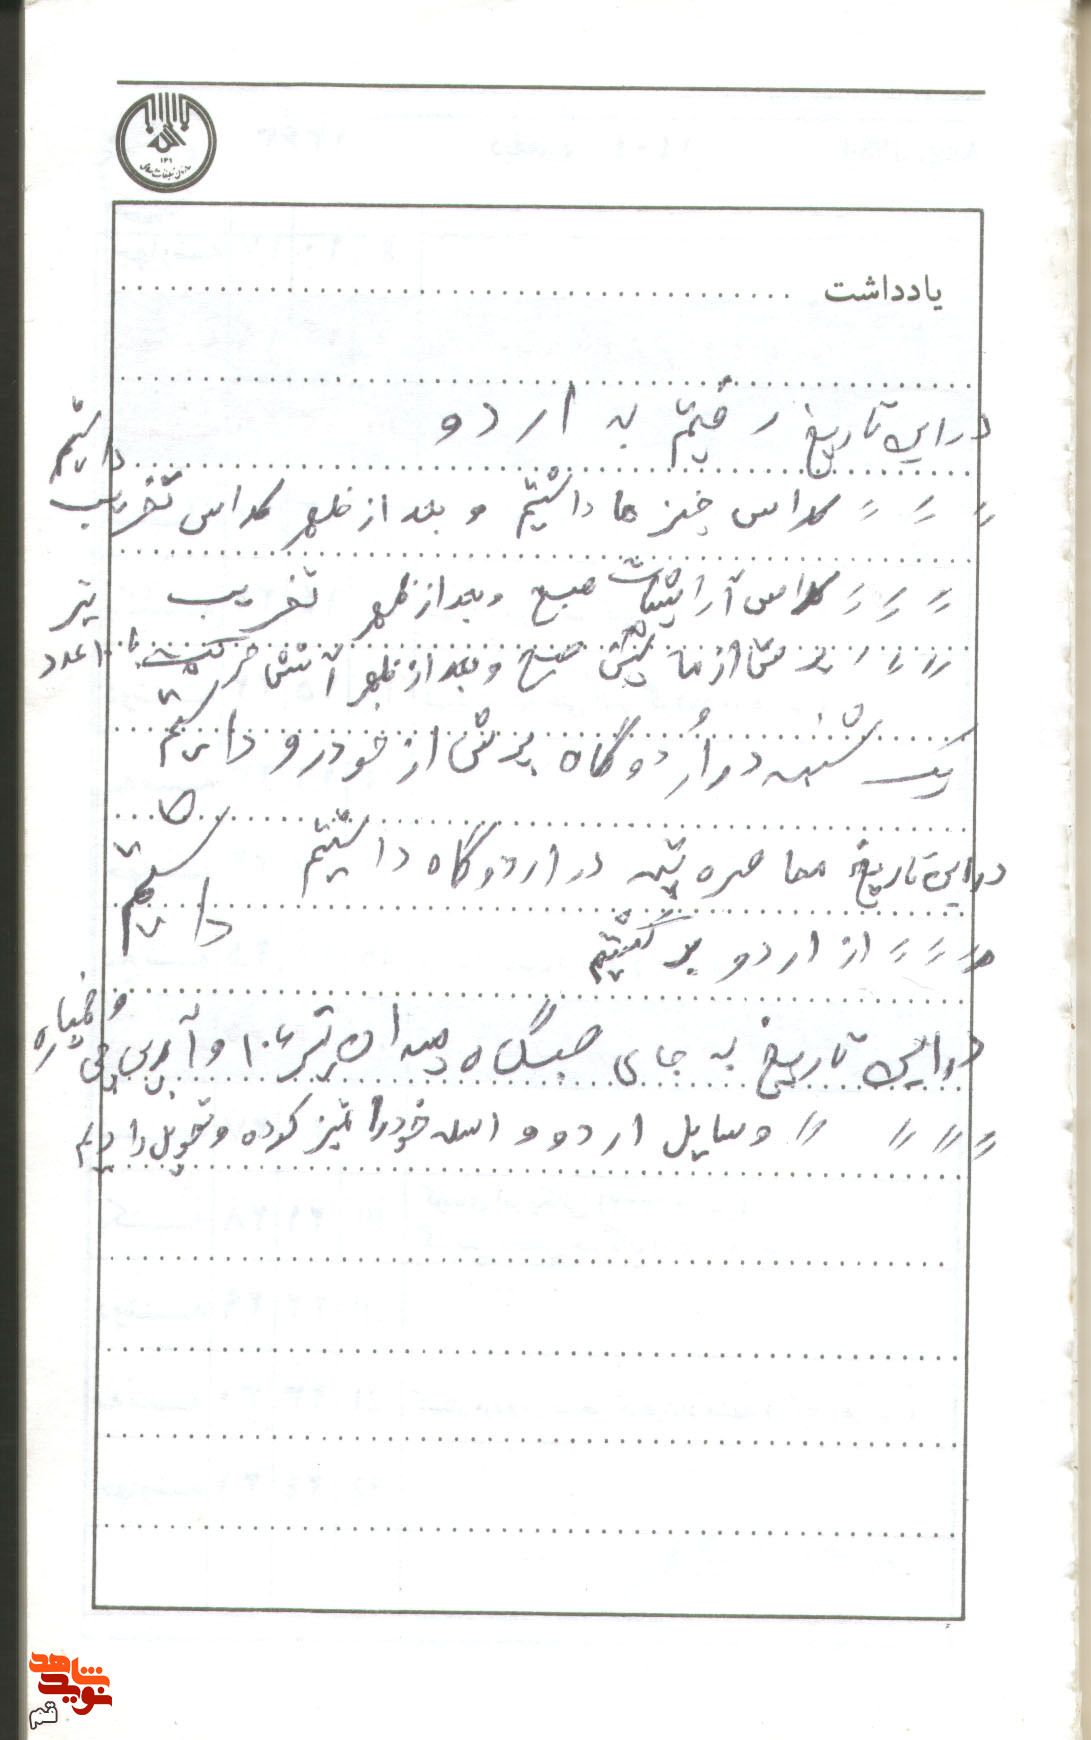 یادداشت
در این تاریخ رفتیم به اردو
〃 〃 〃 کلاس چیز ها داشتیم و بعد از ظهر کلاس تخریب داشتیم
〃 〃 〃 کلاس آر صبح و بعد از ظهر تخریب
〃 〃 〃 پرش از ماشین صبح و بعد از ظهر آتش حرکت با ۱۰ عدد تیر
یک شنبه در اردوگاه پرش از خودرو داشتیم
در این تاریخ محاصره تپه در اردوگاه داشتیم
〃 〃 〃 از اردو برگشتیم
در این تاریخ به جای صبحگاه میدان تیر ۱۰۶ و آرپی جی و خمپاره داشتیم
〃 〃 〃 〃 وسایل اردو و اسلحه خود را تمیز کرده و تحویل دادیم
شاهد
نوید
قم